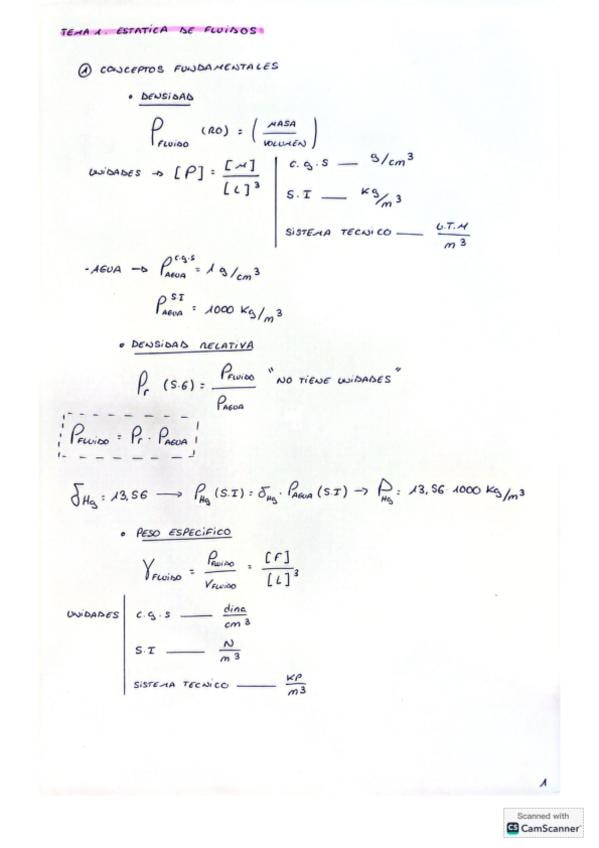 TEMA 1. ESTATICA DE FLUIDOS
① CONCEPTOS FUNDAMENTALES
• DENSIDAD
ρ_FLUIDO (RO) = (MASA / VOLUMEN)
UNIDADES → [ρ] = [M] / [L]³
C.g.S — g/cm³
S.I — Kg/m³
SISTEMA TECNICO — U.T.M / m³
- AGUA → ρ_AGUA^C.g.S = 1 g/cm³
ρ_AGUA^S.I = 1000 Kg/m³
• DENSIDAD RELATIVA
ρr (S.G) = ρ_FLUIDO / ρ_AGUA "NO TIENE UNIDADES"
ρ_FLUIDO = ρr · ρ_AGUA
δ_Hg = 13,56 → ρ_Hg (S.I) = δ_Hg · ρ_AGUA (S.I) → ρ_Hg = 13,56 1000 Kg/m³
• PESO ESPECIFICO
γ_FLUIDO = P_FLUIDO / V_FLUIDO = [F] / [L]³
UNIDADES
C.g.S — dina / cm³
S.I — N / m³
SISTEMA TECNICO — KP / m³
1
Scanned with
CS CamScanner